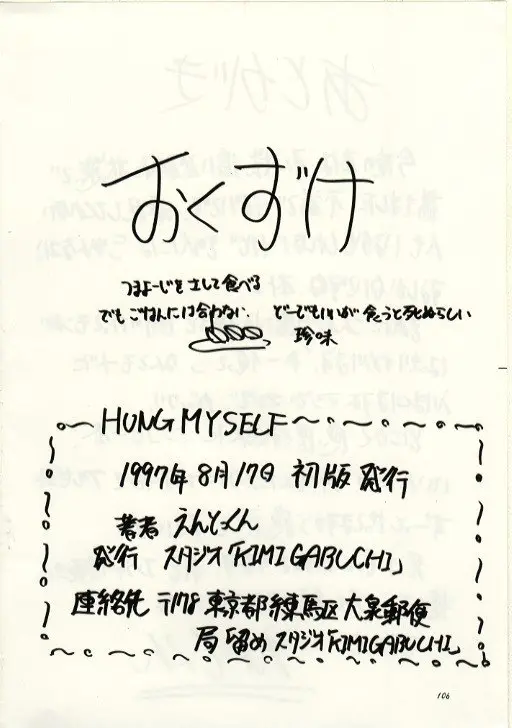 おくずけ
つまよーじをさして食べる
でもごはんには合わない。 どーでもいいが 食うと死ぬらしい
珍味
HUNG MYSELF
1997年8月17日 初版発行
著者 えんとっくん
発行 スタジオ「KIMIGABUCHI」
連絡先 〒178 東京都練馬区大泉郵便
局 留め スタジオ「KIMIGABUCHI」
106